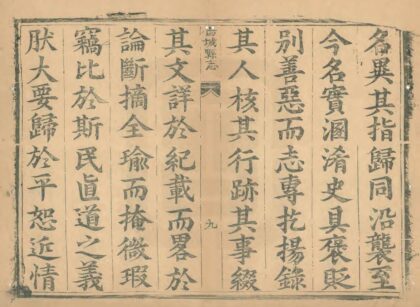 名異其指歸同沿襲至
今名實溷淆史具褒貶
別善惡而志專扢揚錄
其人核其行跡其事綴
縣志
九
其文詳於紀載而畧於
論斷摘全瑜而掩微瑕
竊比於斯民直道之義
肰大要歸於平恕近情